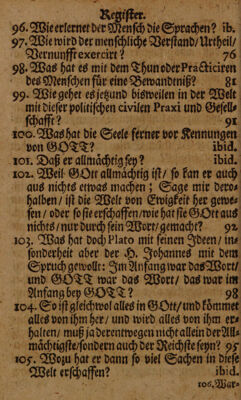 Register.
96. Wie erlernet der Mensch die Sprachen? ib.
97. Wie wird der menschliche Verstand/ Urtheil/
Vernunfft exercirt? 76
98. Was hat es mit dem Thun oder Practiciren
des Menschen für eine Bewandtniß? 81
99. Wie gehet es jetzund bisweilen in der Welt
mit dieser politischen civilen Praxi und Gesell-
schafft? 91
100. Was hat die Seele ferner vor Kennungen
von GOTT? ibid.
101. Daß er allmächtig sey? ibid.
102. Weil GOtt allmächtig ist/ so kan er auch
aus nichts etwas machen; Sage mir dero-
halben/ ist die Welt von Ewigkeit her gewe-
sen/ oder so sie erschaffen/ wie hat sie GOtt aus
nichts/ nur durch sein Wort/ gemacht? 92
103. Was hat doch Plato mit seinen Ideen/ in-
sonderheit aber der H. Johannes mit dem
Spruch gewollt: Im Anfang war das Wort/
und GOTT war das Wort/ das war im
Anfang bey GOTT? 98
104. So ist gleichwol alles in GOtt/ und kömmet
alles von ihm her/ und wird alles von ihm er-
halten/ muß ja derentwegen nicht allein der All-
mächtigste/ sondern auch der Reichste seyn? 95
105. Wozu hat er dann so viel Sachen in diese
Welt erschaffen? ibid.
106. War-